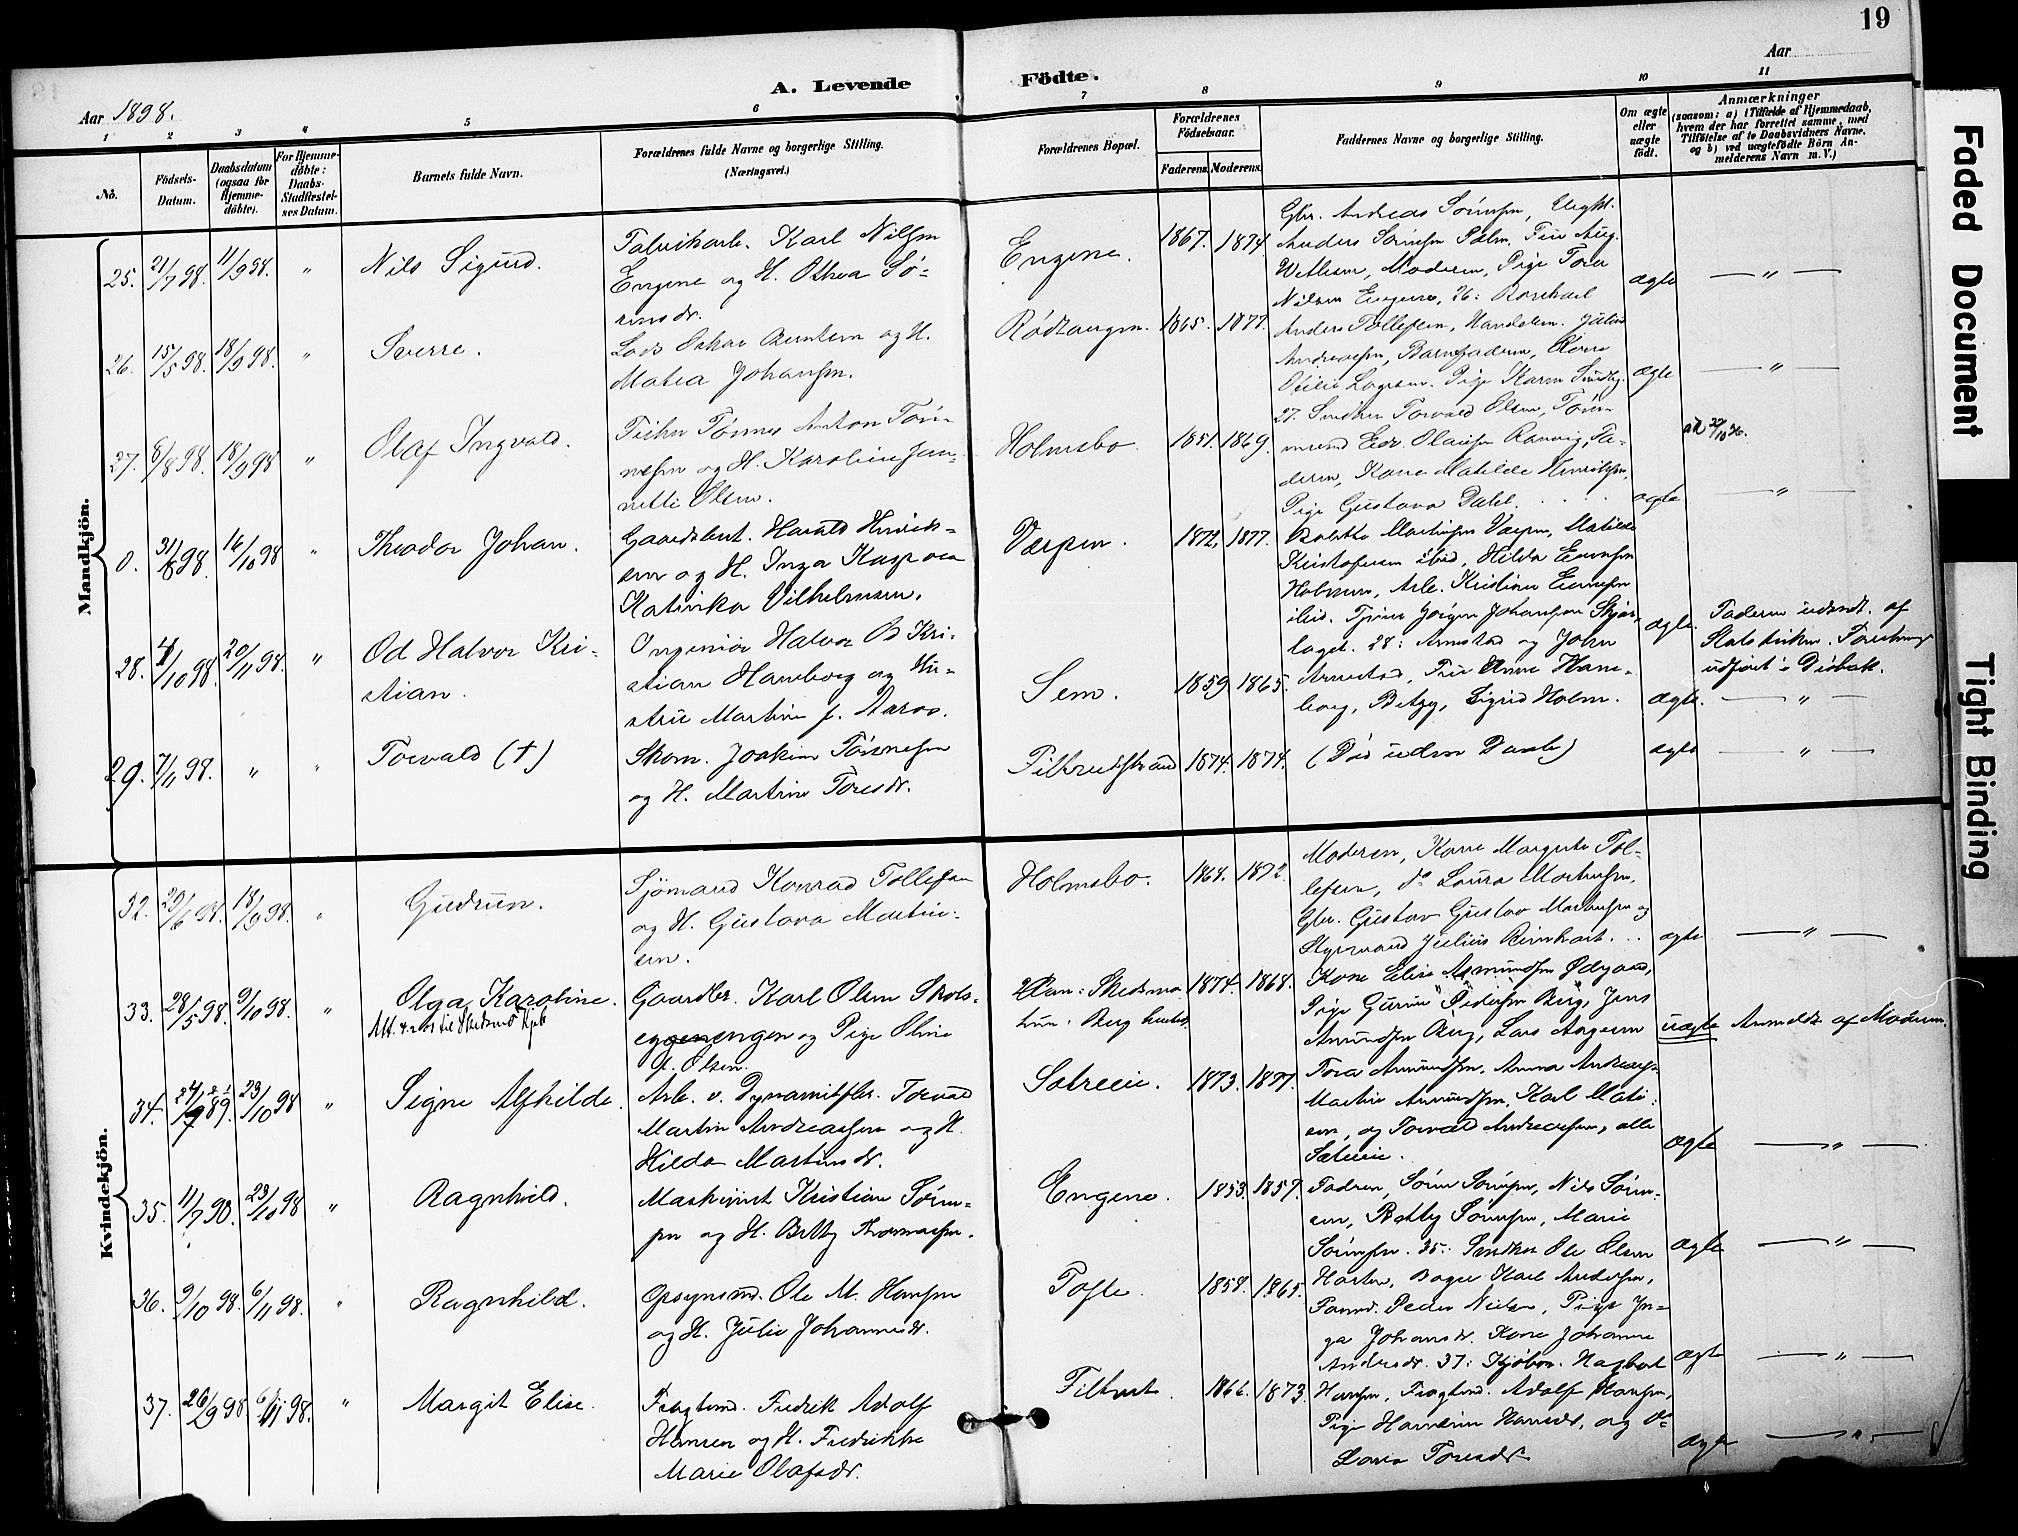 19
A. Levende Födte.
Aar 1898.
Aar
1 2 3 4 5 6 7 8 9 10 11
No.
Födsels-Datum.
Daabsdatum (ogsaa for Hjemme-döbte).
For Hjemme-döbte: Daabs-Stadfestel-ses Datum.
Barnets fulde Navn.
Forældrenes fulde Navne og borgerlige Stilling.
(Næringsvei.)
Forældrenes Bopæl.
Forældrenes Födselsaar.
Faderens. Moderens.
Faddernes Navne og borgerlige Stilling.
Om ægte eller uægte födt.
Anmærkninger
(saasom: a) i Tilfælde af Hjemmedaab,
hvem der har forrettet samme, med
Tilföielse af to Daabsvidners Navne,
og b) ved uægtefödte Börn An-
melderens Navn m. V.)
Mandkjön.
25. 21/7 98. 11/9 98. " Nils Sigurd.
Karl Nilsen
Engene og H. Othea Sö-
rensdr.
Engene. 1867. 1874.
Gbr. Andreas Sörensen,
Anders Sörensen
Moderen, Pige Tora
Nilsen Engene, 26:
ægte — " —
26. 15/5 98. 18/9 98. " Sverre.
Lods Oskar Berntsen og H.
Matea Johansen.
Rödtangen. 1865. 1877.
Anders Tollefsen, Handelsm. Julius
Andreasen, Barnefaderen,
Pige Karen
ægte — " —
27. 6/8 98. 18/9 98 " Olaf Ingvald.
Fisker Tönnes Anton Tön-
nesen og H. Karoline Jen-
nette Olsen.
Holmsbo. 1851. 1869.
27. Snedker Torvald Olsen, Töm-
mermand Edv. Olausen Fa-
deren, Kone Matilde Henriksen,
Pige Gustava Dahl . . . .
ægte — " —
0. 31/8 98. 16/10 98 " Theodor Johan.
Gaardsbest. Harald Henrik-
sen og H. Inga Kaspara
Katinka Vilhelmsen.
Verpen. 1872. 1877.
Bolette Martinsen Verpen, Matilde
Kristofersen ibid, Hilda Evensen
Holmen, Arb. Kristian Evensen
ibid. Tjener Jörgen Johansen
laget. 28: Arnestad og John
ægte.
Faderen udmdt. af
Statskirken.
udfört i Dröbak.
28. 4/10 98. 20/11 98. " Od Halvor Kri-
stian.
Ingeniör Halvor B Kri-
stian Haneborg og Hu-
stru Martine f. Aaros.
Sem. 1859. 1865.
Arnestad, Fru Anne Hane-
borg, Betzy, Sigrid Holm.
ægte. — " —
29. 7/11 98. " " Torvald (†)
Skom. Joakim Tönnesen
og H. Martine Toresdr.
Filtvedtstrand 1874. 1874.
(Död uden Daab)
ægte — " —
Kvindekjön.
32. 29/6 98. 18/9 98. " Gudrun.
Sjömand Konrad Tollefsen
og H. Gustava Martin-
sen.
Holmsbo. 1868. 1872.
Moderen, Kone Margrete Tol-
lefsen, do Laura Martinsen,
Gbr. Gustav Gustav Martinsen og
Styrmand Julius Reinhart. . .
ægte — " —
33. 28/5 98. 9/10 98. " Olga Karoline.
Gaardbr. Karl Olsen Skols-
eggenengen og Pige Oline
f. Olsen.
1874. 1868.
Kone Elise Asmundsen Ödegaard,
Pige Gunine Pedersen Berg, Jens
Amundsen Berg, Lars Aagesen
uægte Anmeldt af Moderen.
34. 23/10 98 " Signe Alfhilde.
Arb. v. Dynamitfbr. Torvald
Martin Andreassen og H.
Hilda Martinsdr.
Sætreeie. 1873. 1877.
Tora Amundsen, Anna Andreasen
Martin Amundsen, Karl Mati-
sen, og Torvald Andreasen, alle
Sætreeie.
ægte — " —
35. 11/7 90. 23/10 98 " Ragnhild.
Maskinist Kristian Sören-
sen og H. Betty Thomasen.
Engene. 1853. 1857.
Faderen, Sören Sörensen, Nils Sören-
sen, Betty Sörensen, Marie
Sörensen. 35: Snedker Ole Olsen
ægte — " —
36. 9/10 98. 6/11 98. " Ragnhild.
Opsynsmd. Ole M. Hansen
og H. Julie Johannesdr.
Tofte. 1858. 1865.
Karl Andersen,
Peder Nielsen, Pige In-
ga Johansdr. Kone Johanne
Andersdr. 37: Kjöbm. Hagbart
ægte — " —
37. 26/9 98 6/11 98. " Margit Elise.
Fragtemd. Fredrik Adolf
Hansen og H. Fredrikke
Marie Olafsdr.
Filtvet. 1866. 1873.
Hansen, Fragtemd. Adolf Hansen,
Pige Hansdr, og do
Toresdr
ægte — " —
Faded Document
Tight Binding